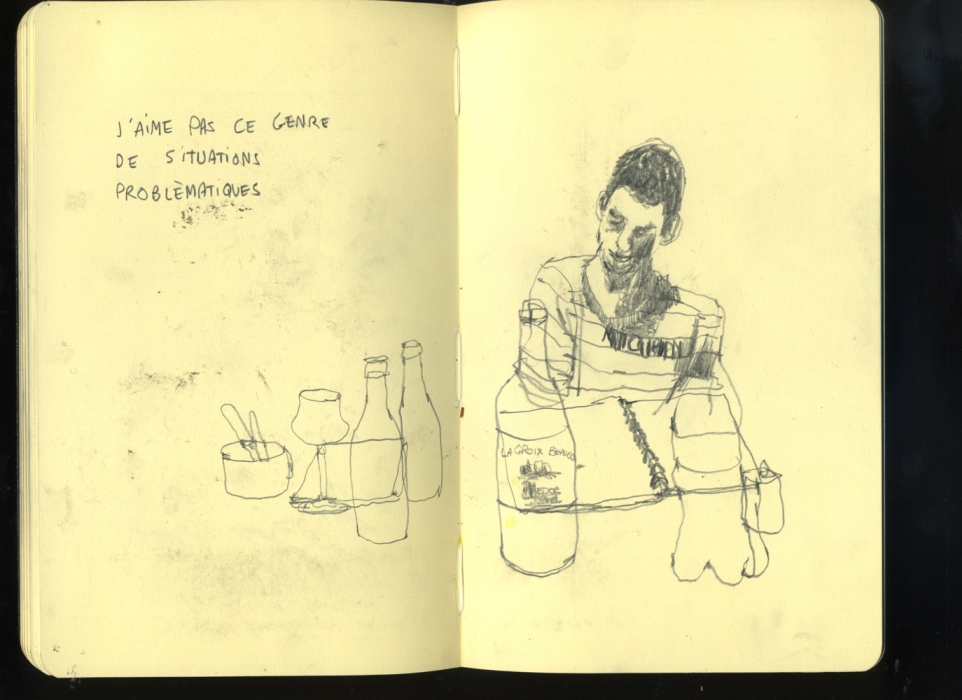 J'AIME PAS CE GENRE
DE SITUATIONS
PROBLÈMATIQUES
LA CROIX